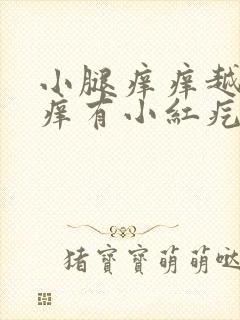 小腿痒痒越
痒有小红疙
猪宝宝萌萌哒